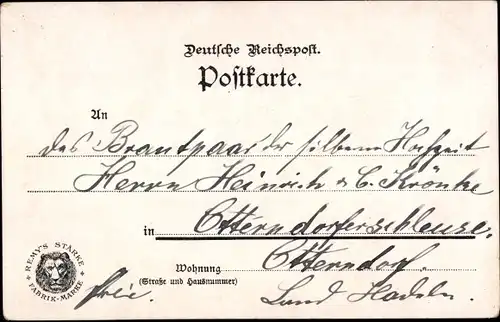 Deutsche Reichspost.
Postkarte.
An
das Brautpaar der silbernen Hochzeit
Herrn Heinrich & C. Krönke
in Otterndorferschleuse.
Wohnung
(Straße und Hausnummer)
Otterndorf.
Land Hadeln.
REMY'S STÄRKE
FABRIK-MARKE
frei.